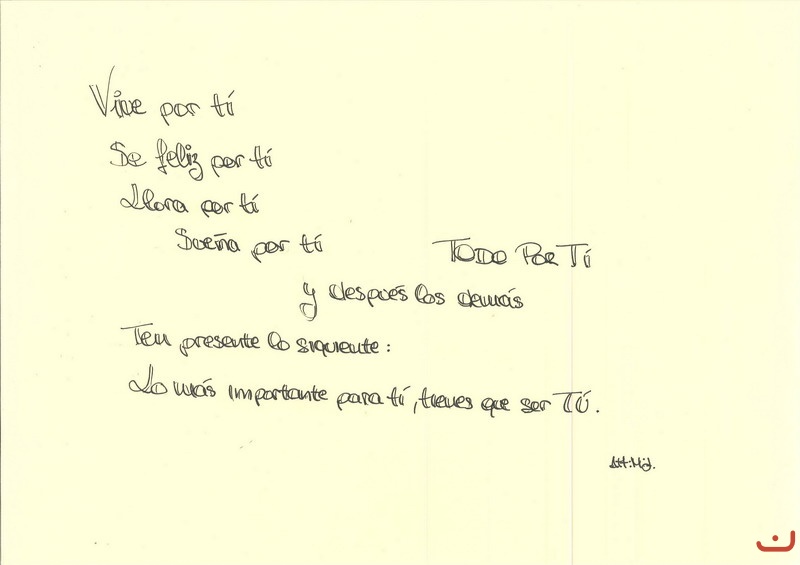 Vive por tí
Se feliz por tí
Llora por tí
Sueña por tí
TODO POR TÍ
y después los demás
Ten presente lo siguiente:
Lo más importante para tí, tienes que ser TÚ.